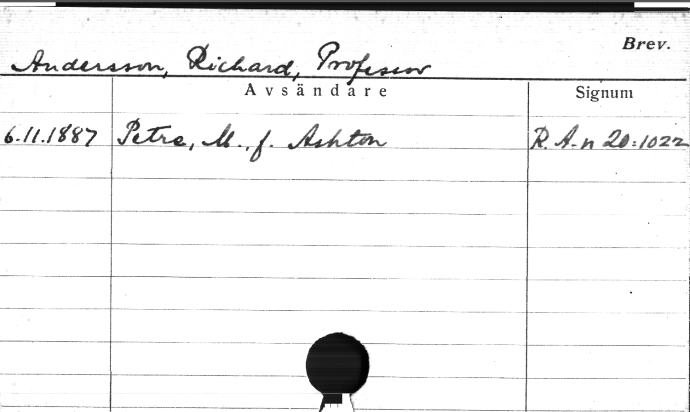 Brev.
Andersson, Richard, Professor
Avsändare Signum
6.11.1887 Petre, M., f. Ashton R.A.n 20:1022